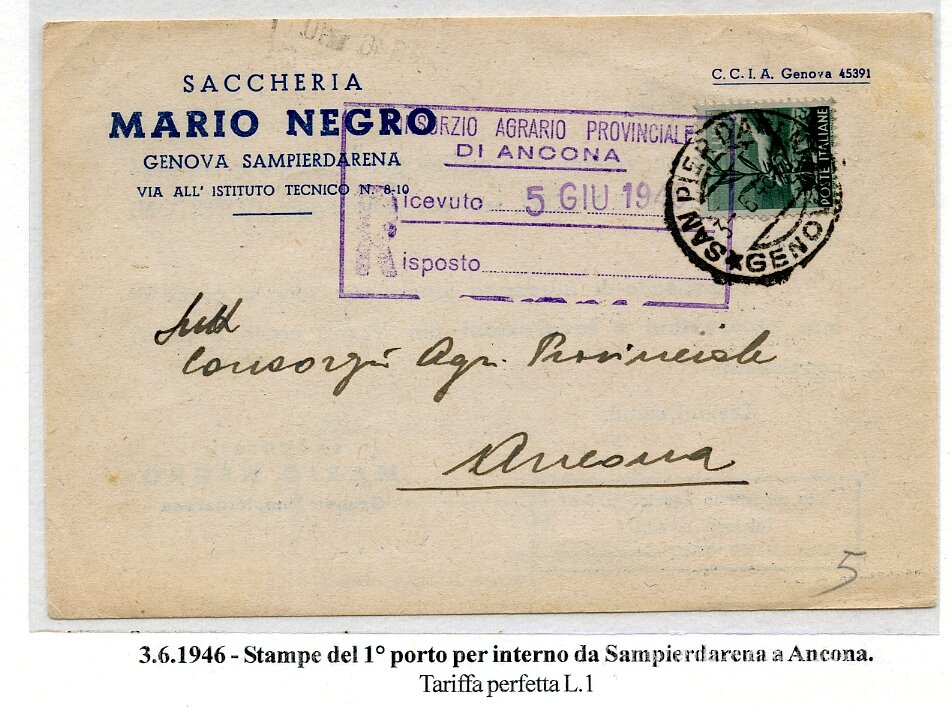 SACCHERIA
MARIO NEGRO
GENOVA SAMPIERDARENA
VIA ALL' ISTITUTO TECNICO N. 8-10
C. C. I. A. Genova 45391
SORZIO AGRARIO PROVINCIALE
DI ANCONA
Ricevuto 5 GIU 194
Risposto
POSTE ITALIANE
SAN PIERDA
GENO
Consorzio Agr. Provinciale
Ancona
5
3.6.1946 - Stampe del 1° porto per interno da Sampierdarena a Ancona.
Tariffa perfetta L.1